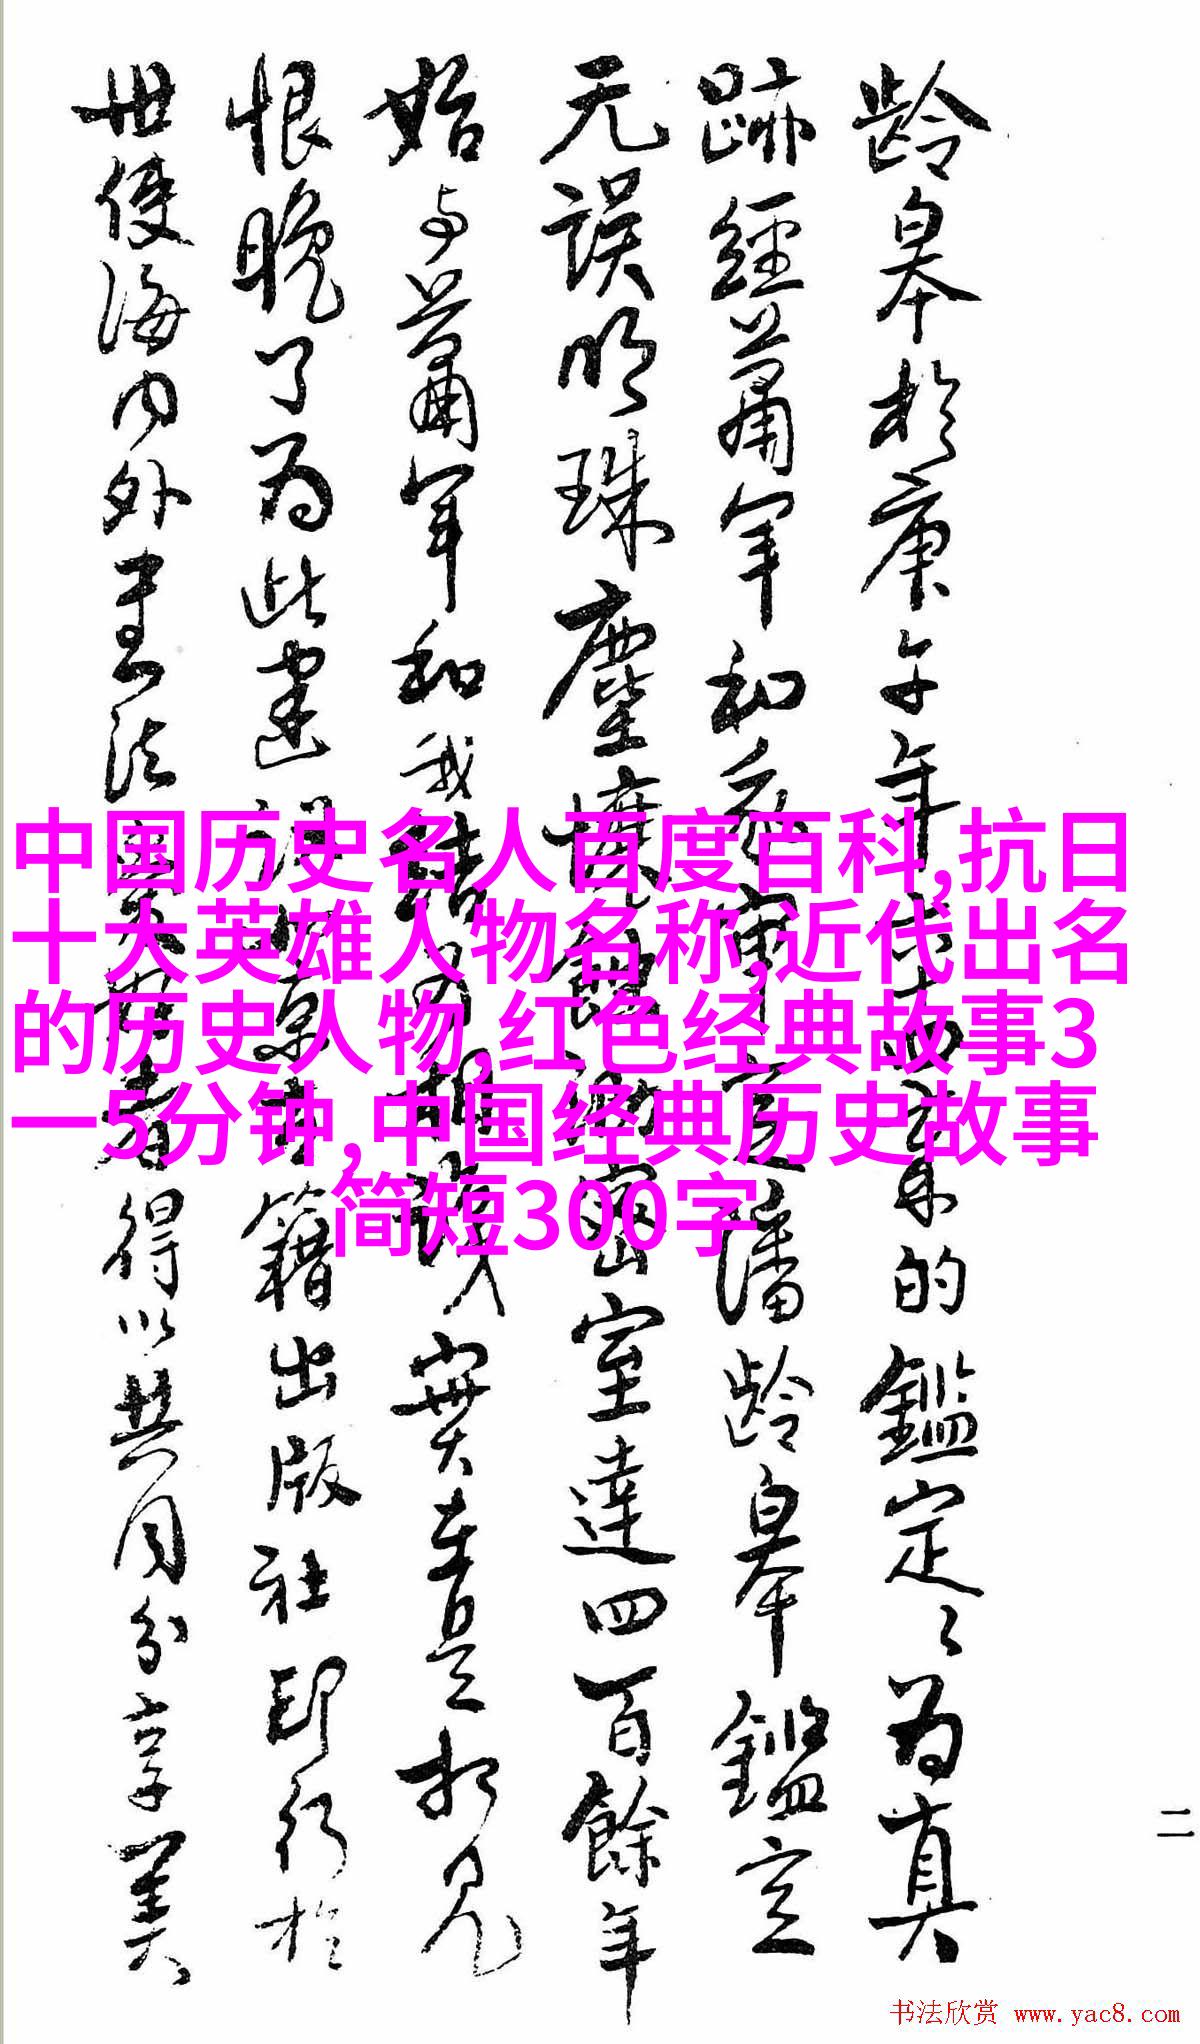 龄皋於庚午年代初的鑑定之为真
跡經萧军和審定潘龄皋鑑定
无误明珠塵室達四百餘年
始与萧军和我实在是相见
恨晚了为此建籍出版社印行於
世使海内外书法得以共同分享美
二
中国历史名人百度百科,抗日
十大英雄人物名称,近代出名
的历史人物,红色经典故事3
一5分钟,中国经典历史故事
简短300字
书法欣赏 www.yac8.com